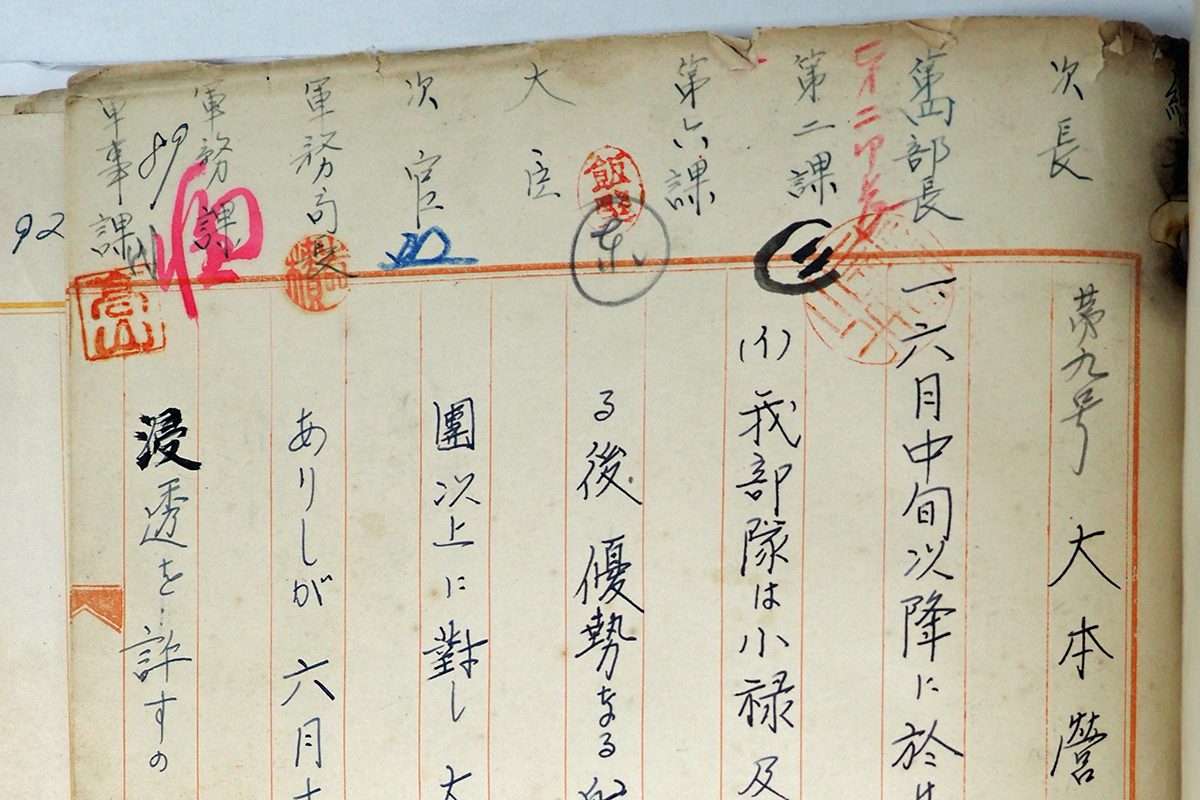 次長
第四部長
第二課
第六課
大臣
次官
軍務局長
軍務課
軍事課
92
89
飯
高山
第九号 大本營
一、六月中旬以降に於
(イ)我部隊は小禄及
る後優勢なる
團以上に對し大
ありしが六月
浸透を許すの